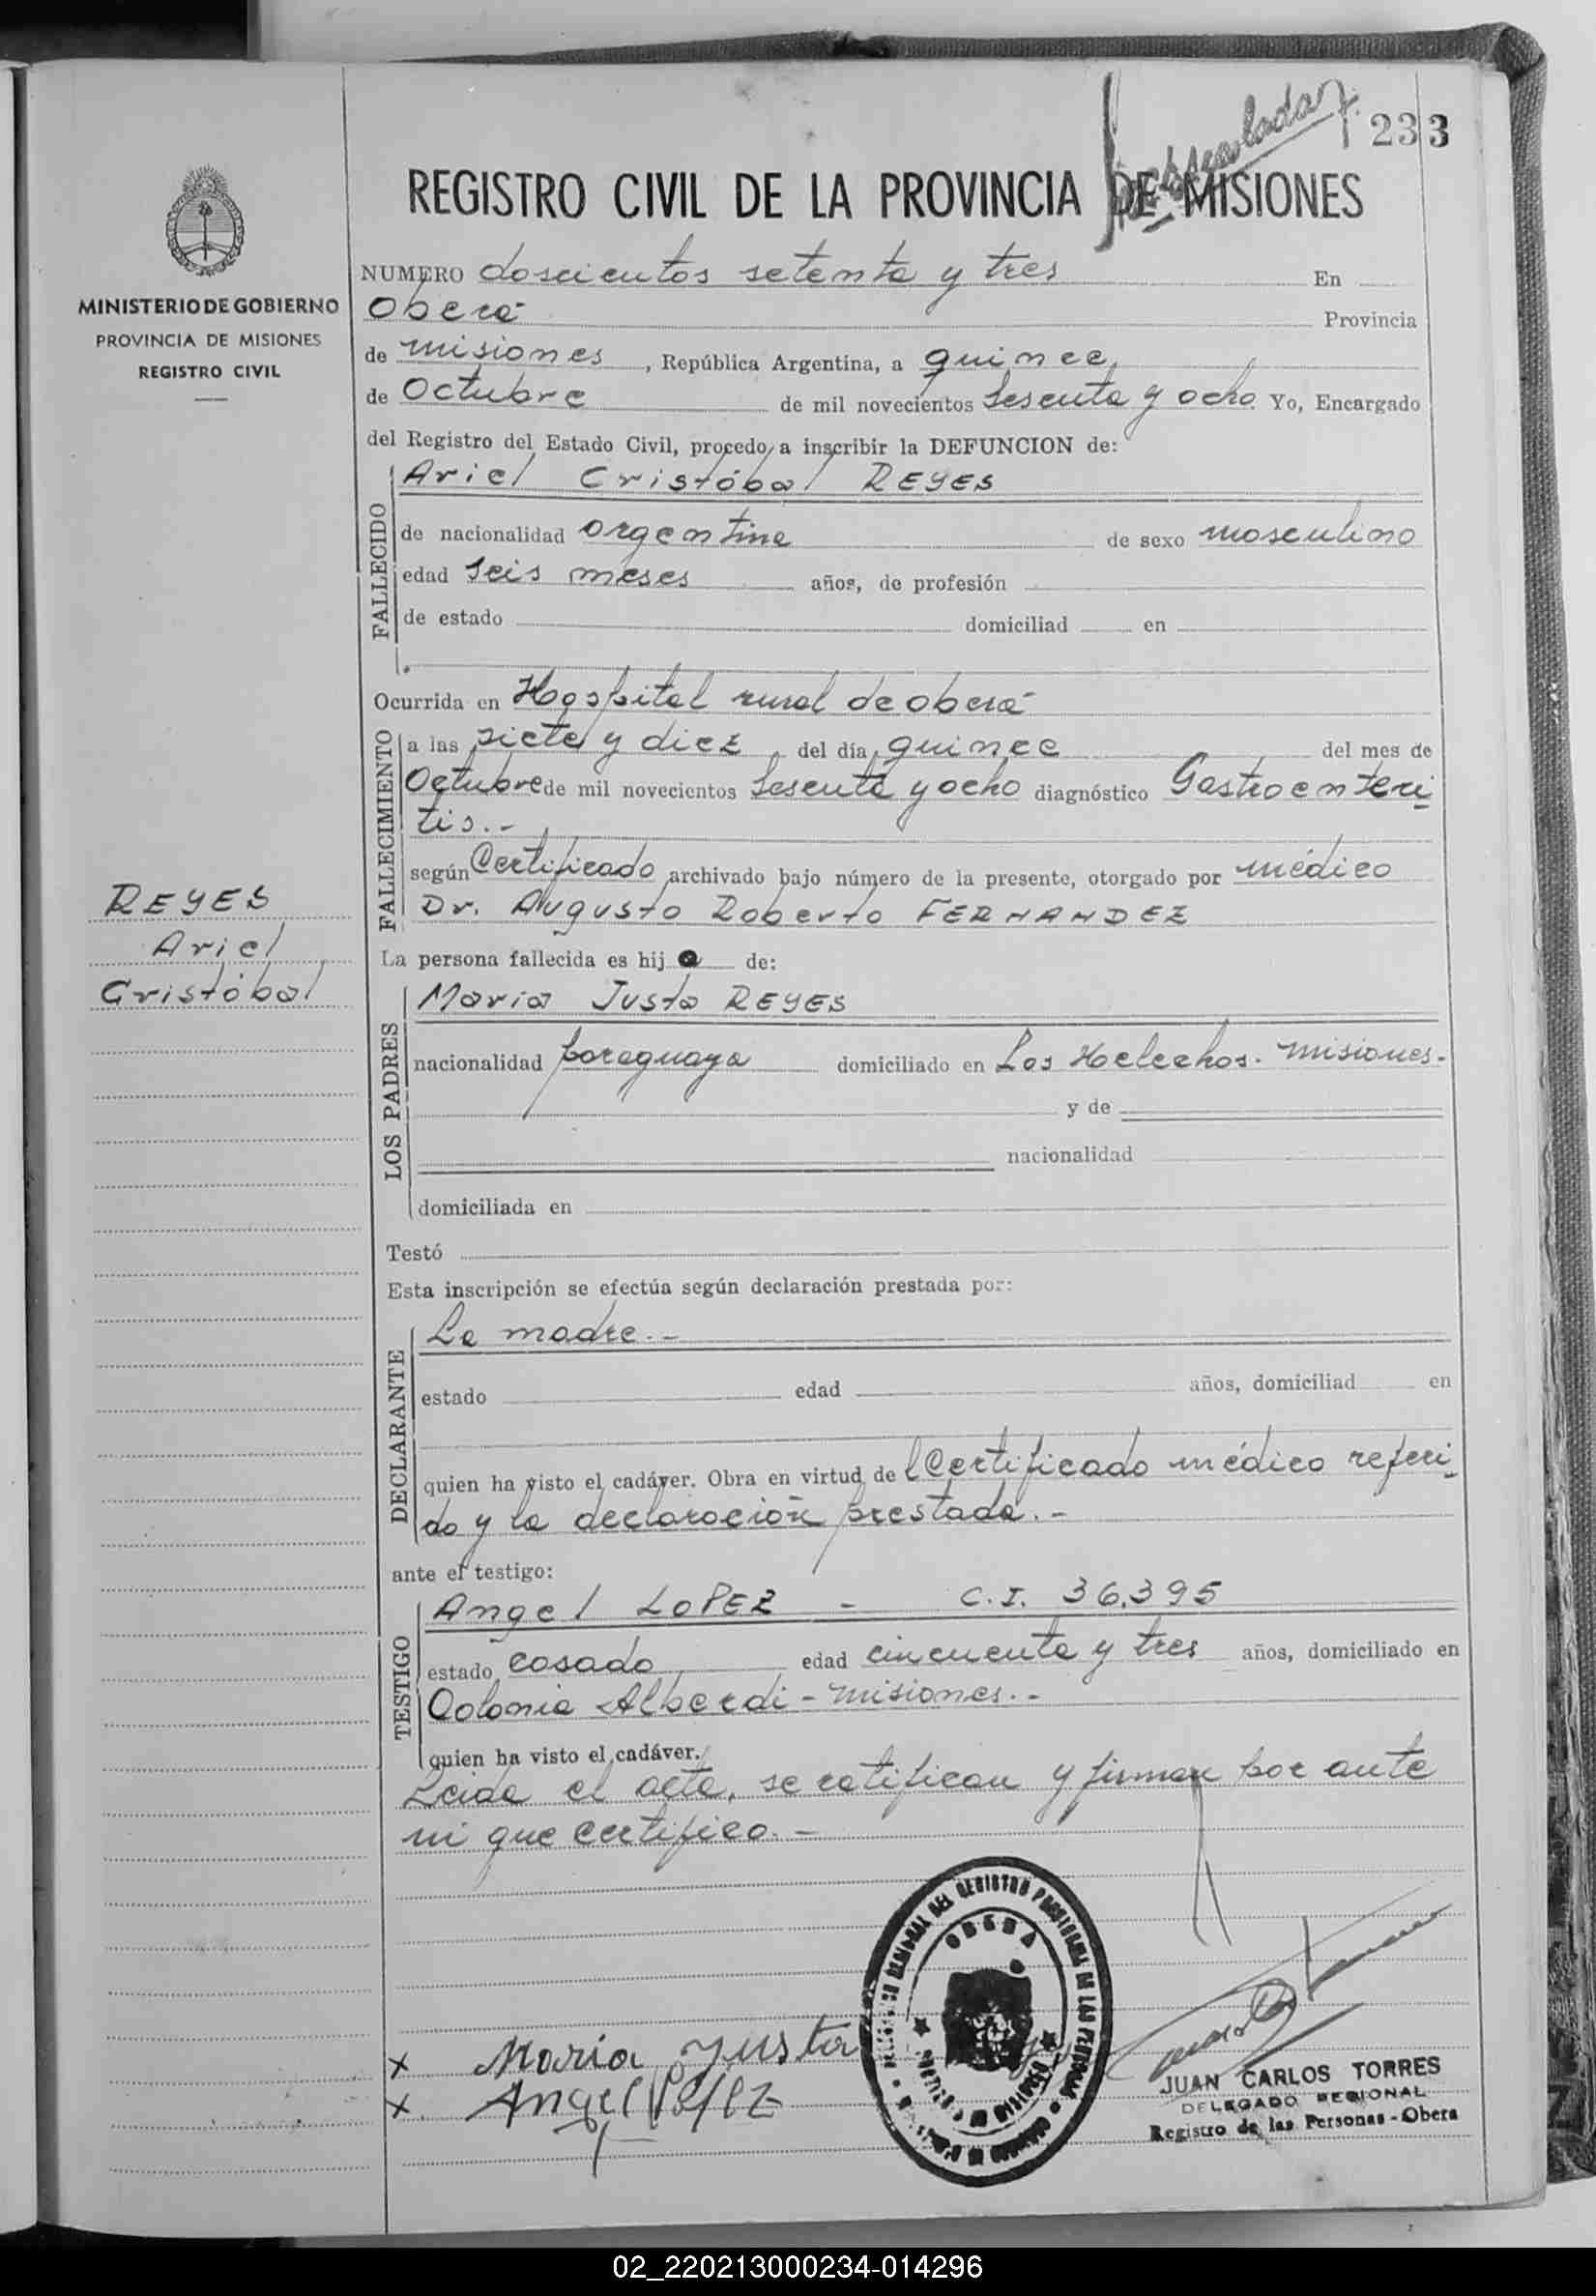 233
REGISTRO CIVIL DE LA PROVINCIA DE MISIONES
MINISTERIO DE GOBIERNO
PROVINCIA DE MISIONES
REGISTRO CIVIL
NUMERO doscientos setenta y tres En
Oberá Provincia
de misiones, República Argentina, a quince
de Octubre de mil novecientos Sesenta y ocho Yo, Encargado
del Registro del Estado Civil, procedo a inscribir la DEFUNCION de:
FALLECIDO
Ariel Cristóbal REYES
de nacionalidad argentina de sexo masculino
edad Seis meses años, de profesión
de estado domiciliad en
Ocurrida en Hospital rural de oberá
FALLECIMIENTO
a las siete y diez del día quince del mes de
Octubre de mil novecientos Sesenta y ocho diagnóstico Gastroenteri
tis.-
según Certificado archivado bajo número de la presente, otorgado por médico
Dr. Augusto Roberto FERNANDEZ
REYES
Ariel
Cristóbal
La persona fallecida es hij o de:
LOS PADRES
Maria Justa REYES
nacionalidad paraguaya domiciliado en Los Helechos. misiones.
y de
nacionalidad
domiciliada en
Testó
Esta inscripción se efectúa según declaración prestada por:
DECLARANTE
La madre.-
estado edad años, domiciliad en
quien ha visto el cadáver. Obra en virtud de l Certificado médico referi
do y la declaración prestada.-
ante el testigo:
TESTIGO
Angel LOPEZ - C.I. 36.395
estado casado edad cincuenta y tres años, domiciliado en
Colonia Alberdi - misiones.-
quien ha visto el cadáver.
Leida el acta, se ratifican y firman por ante
mi que certifico.-
OBERA
x Maria Justa
x Angel
JUAN CARLOS TORRES
DELEGADO REGIONAL
Registro de las Personas - Obera
02_220213000234-014296